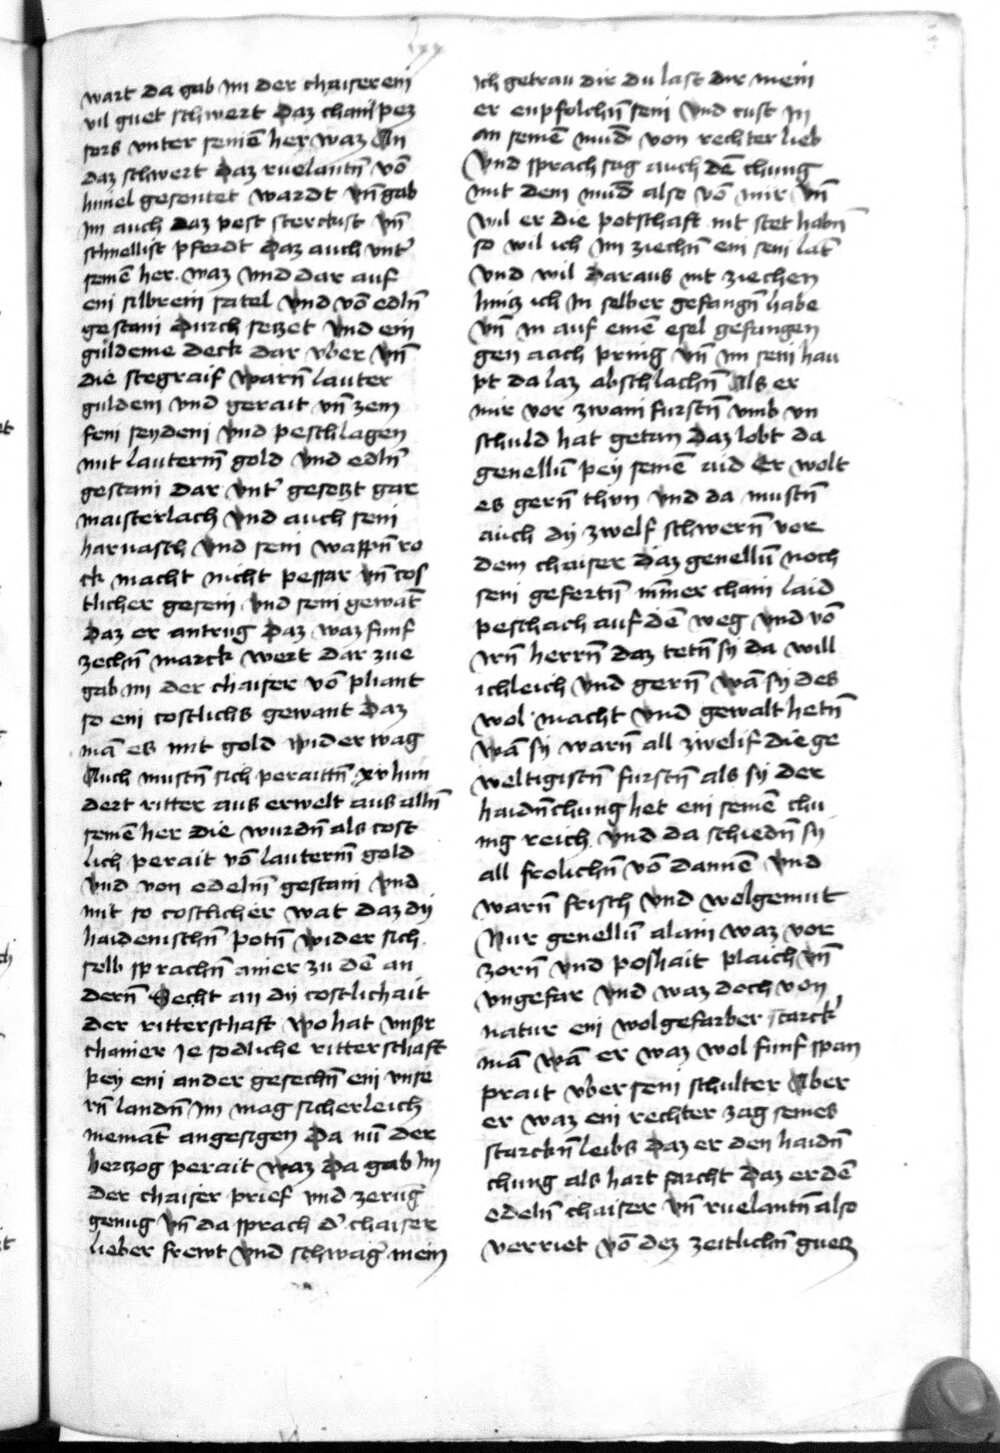 wart da gab im der chaiser ein
vil guet schwert daz chain pez
sers vnter seinē her waz An
daz schwert daz ruelantn̄ vō
himel gesentet wardt vn̄ gab
im auch daz pest sterckist vn̄
schnellist pferdt daz auch vnt'
seinē her waz vnd dar auf
ein silbrein satel vnd vō edln̄
gestain durch seczet vnd ein
guldeine deck dar vber vn̄
die stegraif warn̄ lauter
guldein vnd gerait vn̄ zem
fein seydein vnd peschlagen
mit lauterm̄ gold vnd edln̄
gestain dar vnt' gesetzt gar
maisterlach vnd auch sein
harnasch vnd sein wappn̄ ro
ck macht nicht pessar vn̄ cos
tlicher gesein vnd sein gewāt
daz er antrug daz waz funf
zechn̄ marck wert dar zue
gab im der chaiser vō pliant
so ein costlichs gewant daz
mā es mit gold wider wag
Auch mustn̄ sich peraittn̄ xv hun
dert ritter aus erwelt aus alln̄
seinē her die wurdn̄ als cost
lich perait vō lauterm̄ gold
vnd von edelm̄ gestain vnd
mit so costlicher wat daz dy
haidenischn̄ potn̄ wider sich
selb sprachn̄ ainer zu dē an
dern̄ Secht an dy costlichait
der ritterschaft wo hat vnsr
chainer ie sodliche ritterschaft
pey ein ander gesechn̄ ein vnse
rn̄ landn̄ im mag sicherleich
niemāt angesigen Da nū der
herczog perait waz da gab im
der chaiser prief vnd zeruḡ
genug vn̄ da sprach d' chaiser
lieber frewt vnd schwag' mein
ich getrau dir du last dir mein
er enpfolchn̄ sein vnd tust in
an seinē mud̄ von rechter lieb
vnd sprach sag auch dē chung
mit dem mud̄ also vō mir vn̄
wil er die potschaft nit stet habn̄
so wil ich im ziechn̄ ein sein lāt
vnd wil daraus nit ziechen
hincz ich in selber gefangn̄ habe
vn̄ in auf einē esel gefangen
gen aach pring vn̄ im sein hau
pt da laz abschlachn̄ Als er
mir vor zwain furstn̄ vmb vn
schuld hat getan daz lobt da
genellū pey seinē aid Er wolt
es gern̄ thvn vnd da mustn̄
auch dy zwelf schwern̄ vor
dem chaiser daz genellū noch
sein gefertn̄ nīmer chain laid
peschach auf dē weg vnd vō
irn̄ herrn̄ daz tetn̄ sy da will
ichleich vnd gern̄ wā sy des
wol macht vnd gewalt hetn̄
wā sy warn̄ all zwelif die ge
weltigistn̄ furstn̄ als sy der
haidn̄chung het ein seinē chu
nig reich vnd da schiedn̄ sy
all frolichn̄ vō dannē vnd
warn̄ frisch vnd wolgemut
Nur genellū alain waz vor
zorn̄ vnd poshait plaich vn̄
vngefar vnd waz doch von
natur ein wolgefarber starck'
mā wā er waz wol funf span
prait vber sein schulter Aber
er waz ein rechter zag seines
starckn̄ leibs daz er den haidn̄
chung als hart farcht daz er dē
edeln̄ chaiser vn̄ ruelantn̄ also
verriet vō dez zeitlichn̄ guetz